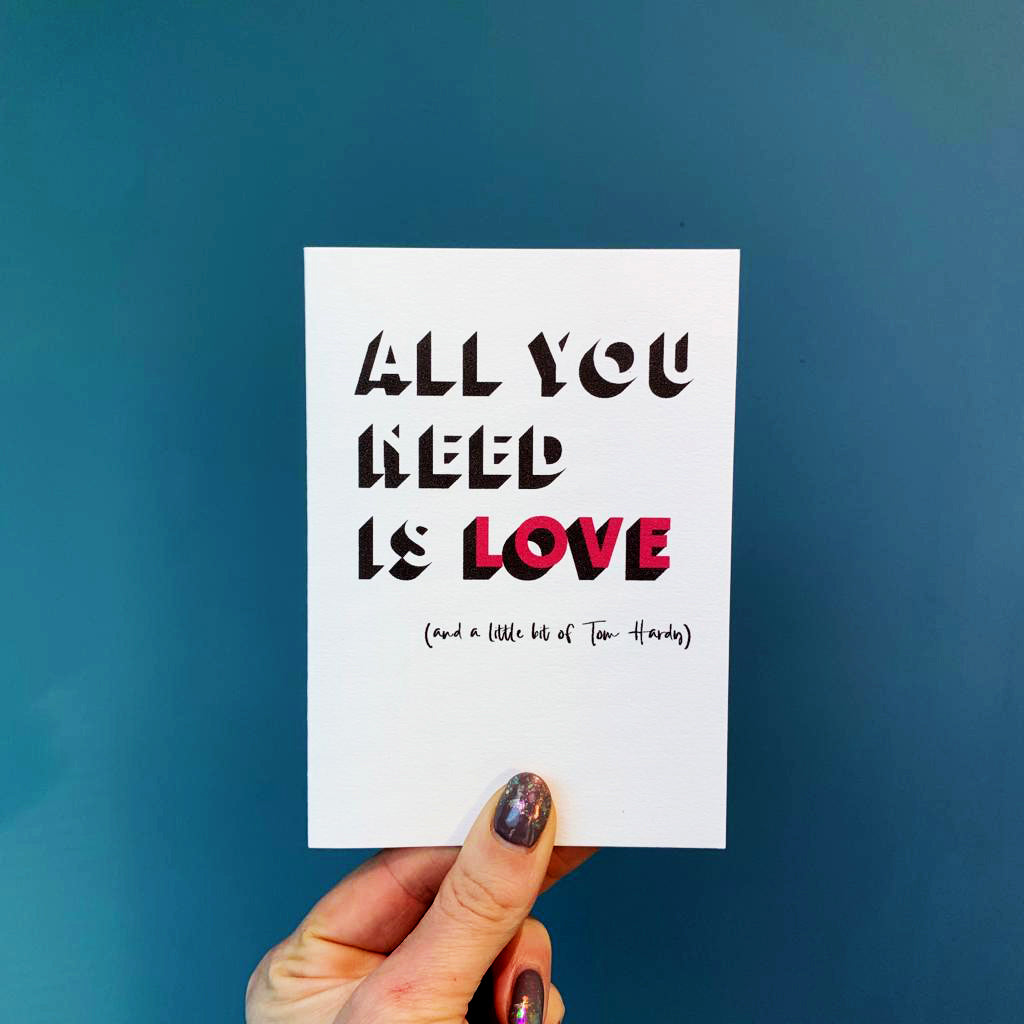 ALL YOU
NEED
IS LOVE
(and a little bit of Tom Hardy)